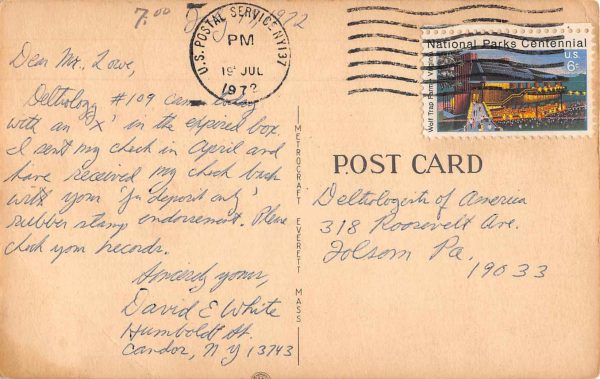 7.00
July 19, 1972
U.S. POSTAL SERVICE NY 137
PM
19 JUL
1972
National Parks Centennial
U.S.
6c
Wolf Trap Farm, Virginia
Dear Mr. Lowe,
Deltiology #109 came today
with an 'X' in the expired box.
I sent my check in April and
have received my check back
with your 'for deposit only'
rubber stamp endorsement. Please
check your records.
Sincerely yours,
David E White
Humboldt St.
Candor, NY 13743
METROCRAFT EVERETT MASS
POST CARD
Deltiologists of America
318 Roosevelt Ave.
Folsom Pa.
19033